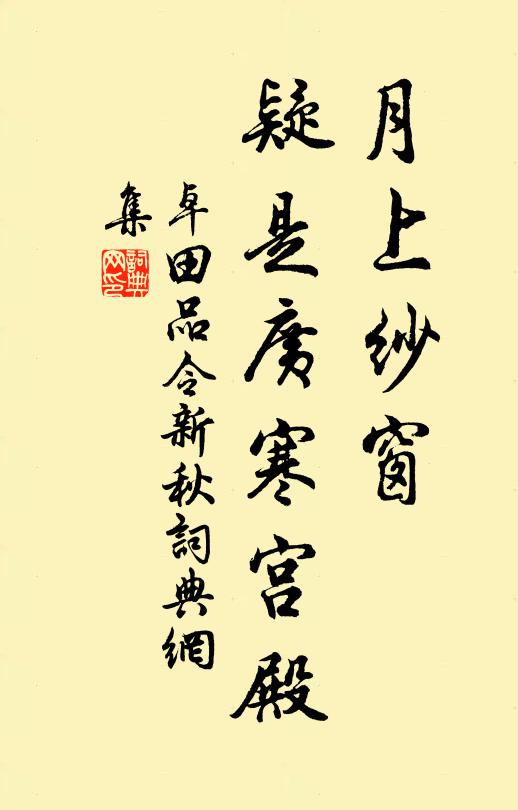 月上纱窗
疑是廣寒宫殿
卓田品令新秋詞典網
集
詞典
网印